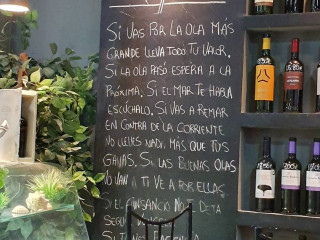 SI VAS POR LA OLA MÁS
GRANDE LLEVA TODO TU VALOR,
SI LA OLA PASÓ ESPERA A LA
PRÓXIMA, SI EL MAR TE HABLA
ESCÚCHALO, SI VAS A REMAR
EN CONTRA DE LA CORRIENTE
NO LLEVES NADA MÁS QUE TUS
GANAS, SI LAS BUENAS OLAS
NO VAN A TI VE A POR ELLAS,
SI EL CANSANCIO NO TE DEJA
SEGUIR
SI